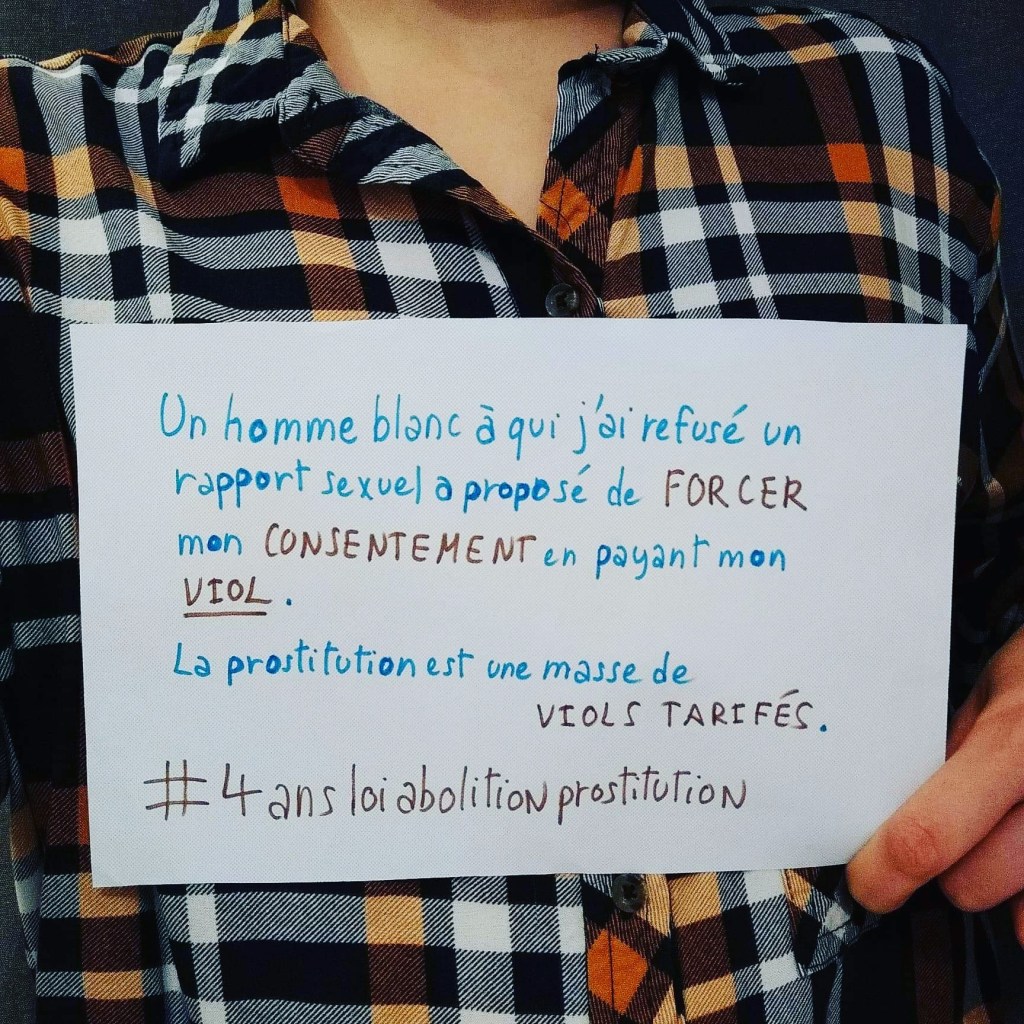 Un homme blanc à qui j'ai refusé un
rapport sexuel a proposé de FORCER
mon CONSENTEMENT en payant mon
VIOL.
La prostitution est une masse de
VIOLS TARIFÉS.
#4ansloiabolitionprostitution